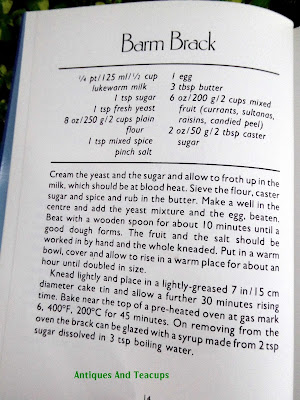 Barm Brack
¼ pt/125 ml/½ cup
lukewarm milk
1 tsp sugar
1 tsp fresh yeast
8 oz/250 g/2 cups plain
flour
1 tsp mixed spice
pinch salt
1 egg
3 tbsp butter
6 oz/200 g/2 cups mixed
fruit (currants, sultanas,
raisins, candied peel)
2 oz/50 g/2 tbsp caster
sugar
Cream the yeast and the sugar and allow to froth up in the
milk, which should be at blood heat. Sieve the flour, caster
sugar and spice and rub in the butter. Make a well in the
centre and add the yeast mixture and the egg, beaten.
Beat with a wooden spoon for about 10 minutes until a
good dough forms. The fruit and the salt should be
worked in by hand and the whole kneaded. Put in a warm
bowl, cover and allow to rise in a warm place for about an
hour until doubled in size.
Knead lightly and place in a lightly-greased 7 in/15 cm
diameter cake tin and allow a further 30 minutes rising
time. Bake near the top of a pre-heated oven at gas mark
6, 400°F, 200°C for 45 minutes. On removing from the
oven the brack can be glazed with a syrup made from 2 tsp
sugar dissolved in 3 tsp boiling water.
14
Antiques And Teacups